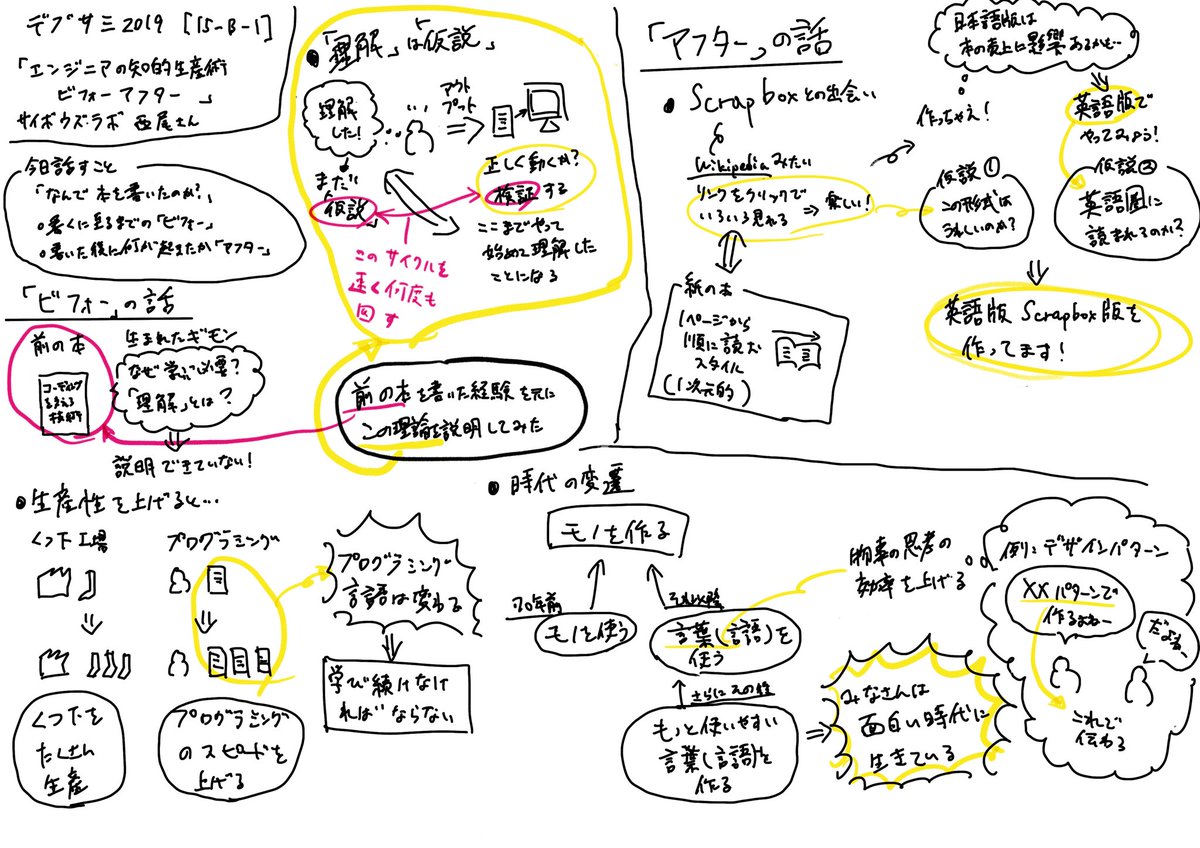 デブサミ2019 [15-B-1]
「エンジニアの知的生産術
ビフォーアフター」
サイボウズラボ 西尾さん
今日話すこと
「なんで本を書いたのか?」
○書くに至るまでの「ビフォー」
○書いた後に何が起きたか「アフター」
「ビフォー」の話
前の本
コーディング
を支える
技術
生まれたギモン
「なぜ学ぶ必要?」
「理解」とは?
説明できていない!
●「理解」は「仮説」
理解
した!
アウト
プット
まだ
「仮説」
正しく動くか?
検証する
ここまでやって
始めて理解した
ことになる
このサイクルを
速く何度も
回す
前の本を書いた経験を元に
この理論を説明してみた
「アフター」の話
●Scrapboxとの出会い
Wikipediaみたい
リンクをクリックで
いろいろ見れる ⇒ 楽しい!
紙の本
1ページから
順に読む
スタイル
(1次元的)
日本語版は
本の売上に影響あるかも…
作っちゃえ!
英語版で
やってみよう!
仮説①
この形式は
うれしいのか?
仮説②
英語圏に
読まれるのか?
英語版Scrapbox版を
作ってます!
●生産性を上げると…
くつ下工場
プログラミング
くつ下を
たくさん
生産
プログラミング
のスピードを
上げる
プログラミング
言語は変わる
学び続けなけ
ればならない
●時代の変遷
モノを作る
70年前
モノを使う
それ以降
言葉(言語)を
使う
さらにその後
もっと使いやすい
言葉(言語)を
作る
物事の思考の
効率を上げる
みなさんは
面白い時代に
生きている
例:デザインパターン
XXパターンで
作るよねー
だよねー
これで
伝わる